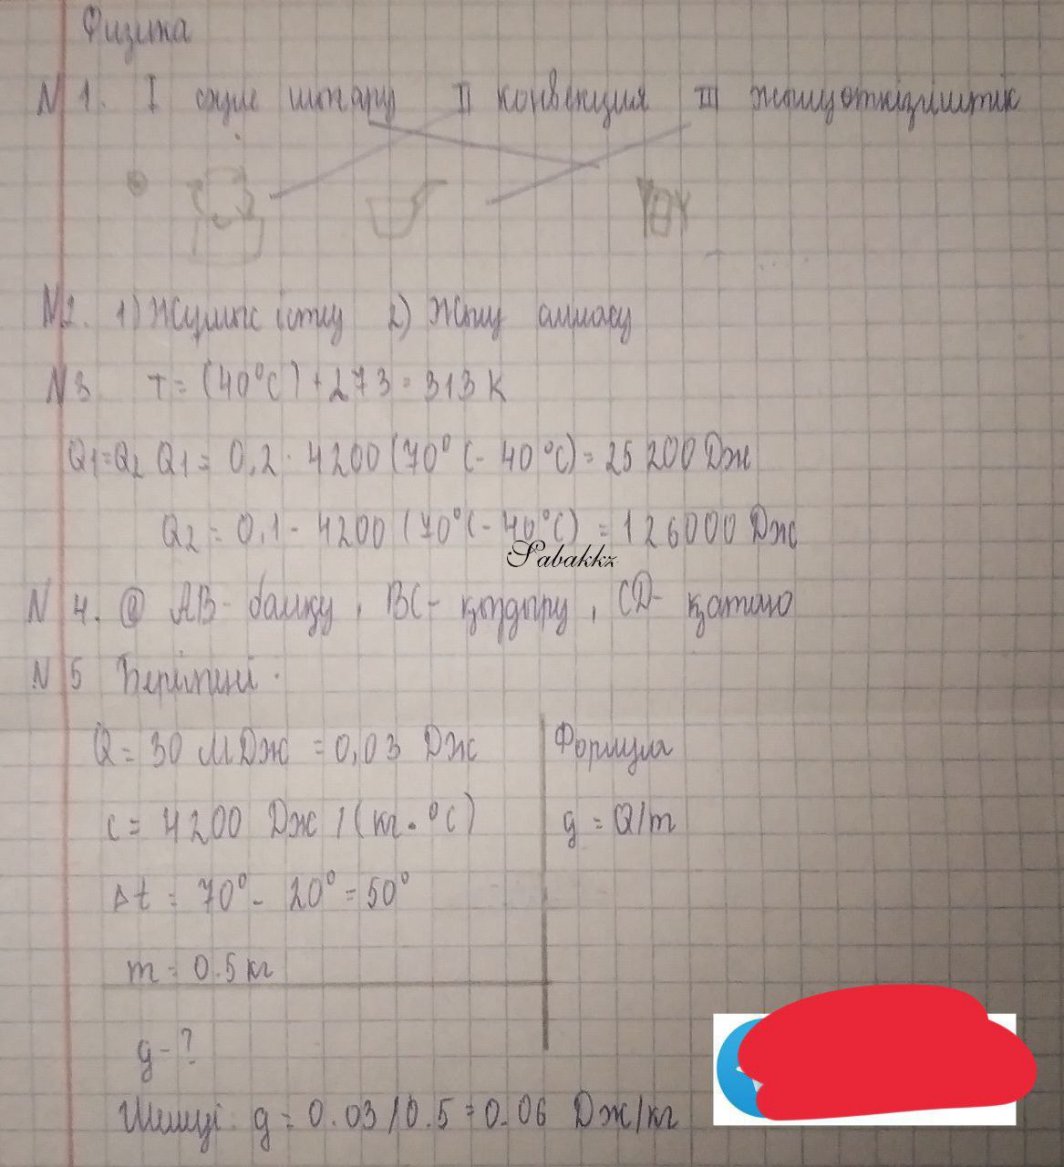 Физика
N 1. I сәуле шығару II конвекция III жылуөткізгіштік
N2. 1) Жұмыс істеу 2) Жылу алмасу
N3 T = (40°C) + 273 = 313 K
Q1=Q2 Q1 = 0,2 · 4200 (70°C - 40°C) = 25 200 Дж
Q2 = 0,1 - 4200 (70°C - 40°C) = 126000 Дж
Sabakkz
N 4. AB - балқу, BC - қыздыру, CD - қатаю
N 5 Берілгені:
Q = 30 МДж = 0,03 Дж Формула
c = 4200 Дж / (кг · °C) g = Q/m
Δt = 70° - 20° = 50°
m = 0.5 кг
g - ?
Шешуі: g = 0.03 / 0.5 = 0.06 Дж/кг